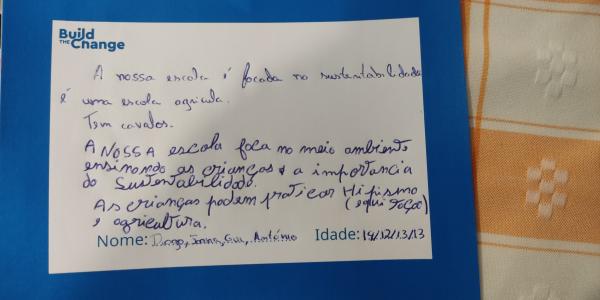 Build
THE Change
A nossa escola é focada na sustentabilidade
é uma escola agricula.
Tem cavalos.
A NOSSA escola foca no meio ambiente
ensinando as crianças a a importancia
da Sustentabilidade.
As crianças podem praticar Hipismo
(equitação)
e agricultura.
Nome: Diogo, , Gui, António Idade: 14/12/13/13